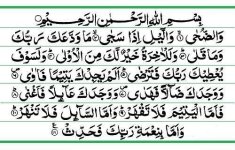 بِسْمِ اللهِ الرَّحْمٰنِ الرَّحِيْمِ
وَالضُّحٰى ۙ وَالَّيْلِ اِذَا سَجٰى ۙ مَا وَدَّعَكَ رَبُّكَ
وَمَا قَلٰى ؕ وَلَلْاٰخِرَةُ خَيْرٌ لَّكَ مِنَ الْاُوْلٰى ؕ وَلَسَوْفَ
يُعْطِيْكَ رَبُّكَ فَتَرْضٰى ؕ اَلَمْ يَجِدْكَ يَتِيْمًا فَاٰوٰى ۪
وَوَجَدَكَ ضَآلًّا فَهَدٰى ۪ وَوَجَدَكَ عَآئِلًا فَاَغْنٰى ؕ
فَاَمَّا الْيَتِيْمَ فَلَا تَقْهَرْ ؕ وَاَمَّا السَّآئِلَ فَلَا تَنْهَرْ ؕ
وَاَمَّا بِنِعْمَةِ رَبِّكَ فَحَدِّثْ